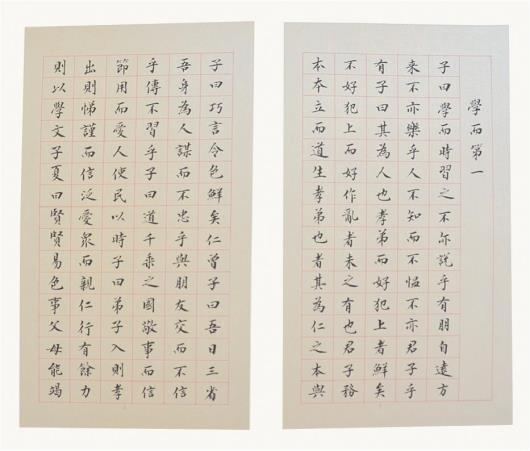 學而第一
子曰學而時習之不亦說乎有朋自遠方
來不亦樂乎人不知而不慍不亦君子乎
有子曰其為人也孝弟而好犯上者鮮矣
不好犯上而好作亂者未之有也君子務
本本立而道生孝弟也者其為仁之本與
子曰巧言令色鮮矣仁曾子曰吾日三省
吾身為人謀而不忠乎與朋友交而不信
乎傳不習乎子曰道千乘之國敬事而信
節用而愛人使民以時子曰弟子入則孝
出則悌謹而信泛愛眾而親仁行有餘力
則以學文子夏曰賢賢易色事父母能竭